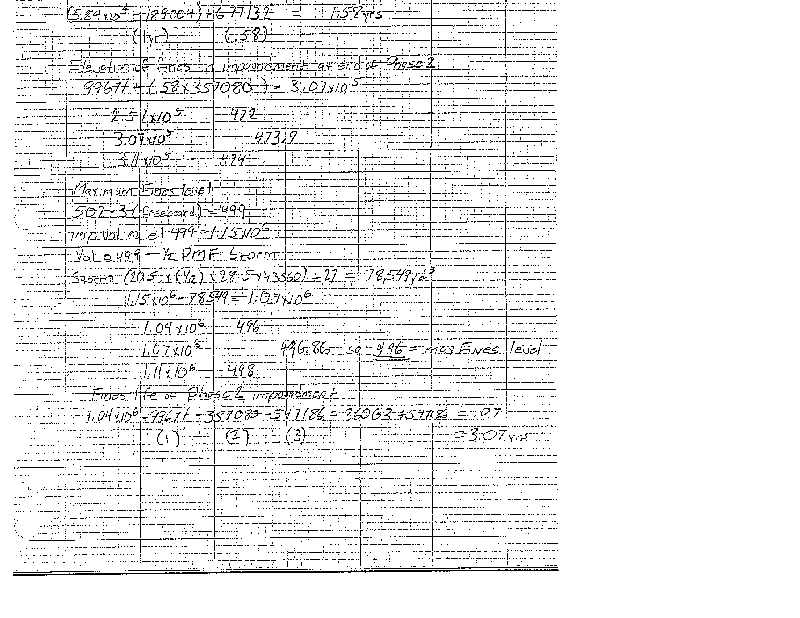 (5.84x10⁵ - 189004) ÷ 677132 = 1.58yrs
(1yr) (.58)
Elevation of Fines in impoundment at end of Phase 2
99677 + (.58x357080) = 3.07x10⁵
472
3.07x10⁵ 473.9
474
Maximum Fines level
502-3(freeboard) = 499
Imp. Vol. @ 499 = 1.15x10⁶
Vol @ 499 - ½ PMF Storm
Storm (20.5 x (½) x 28.5 x 43560) ÷ 27 = 78,549yd³
1.15x10⁶ - 78549 = 1.07x10⁶
1.04x10⁶ 496
1.07x10⁶ 496.86 so 496 = max Fines level
1.11x10⁶ 498
Fines life of Phase 2 impoundment
1.04x10⁶ - 99677 - 357080 - 547186 = ÷ 547186 = .07
(1) (2) (3) = 3.07yrs